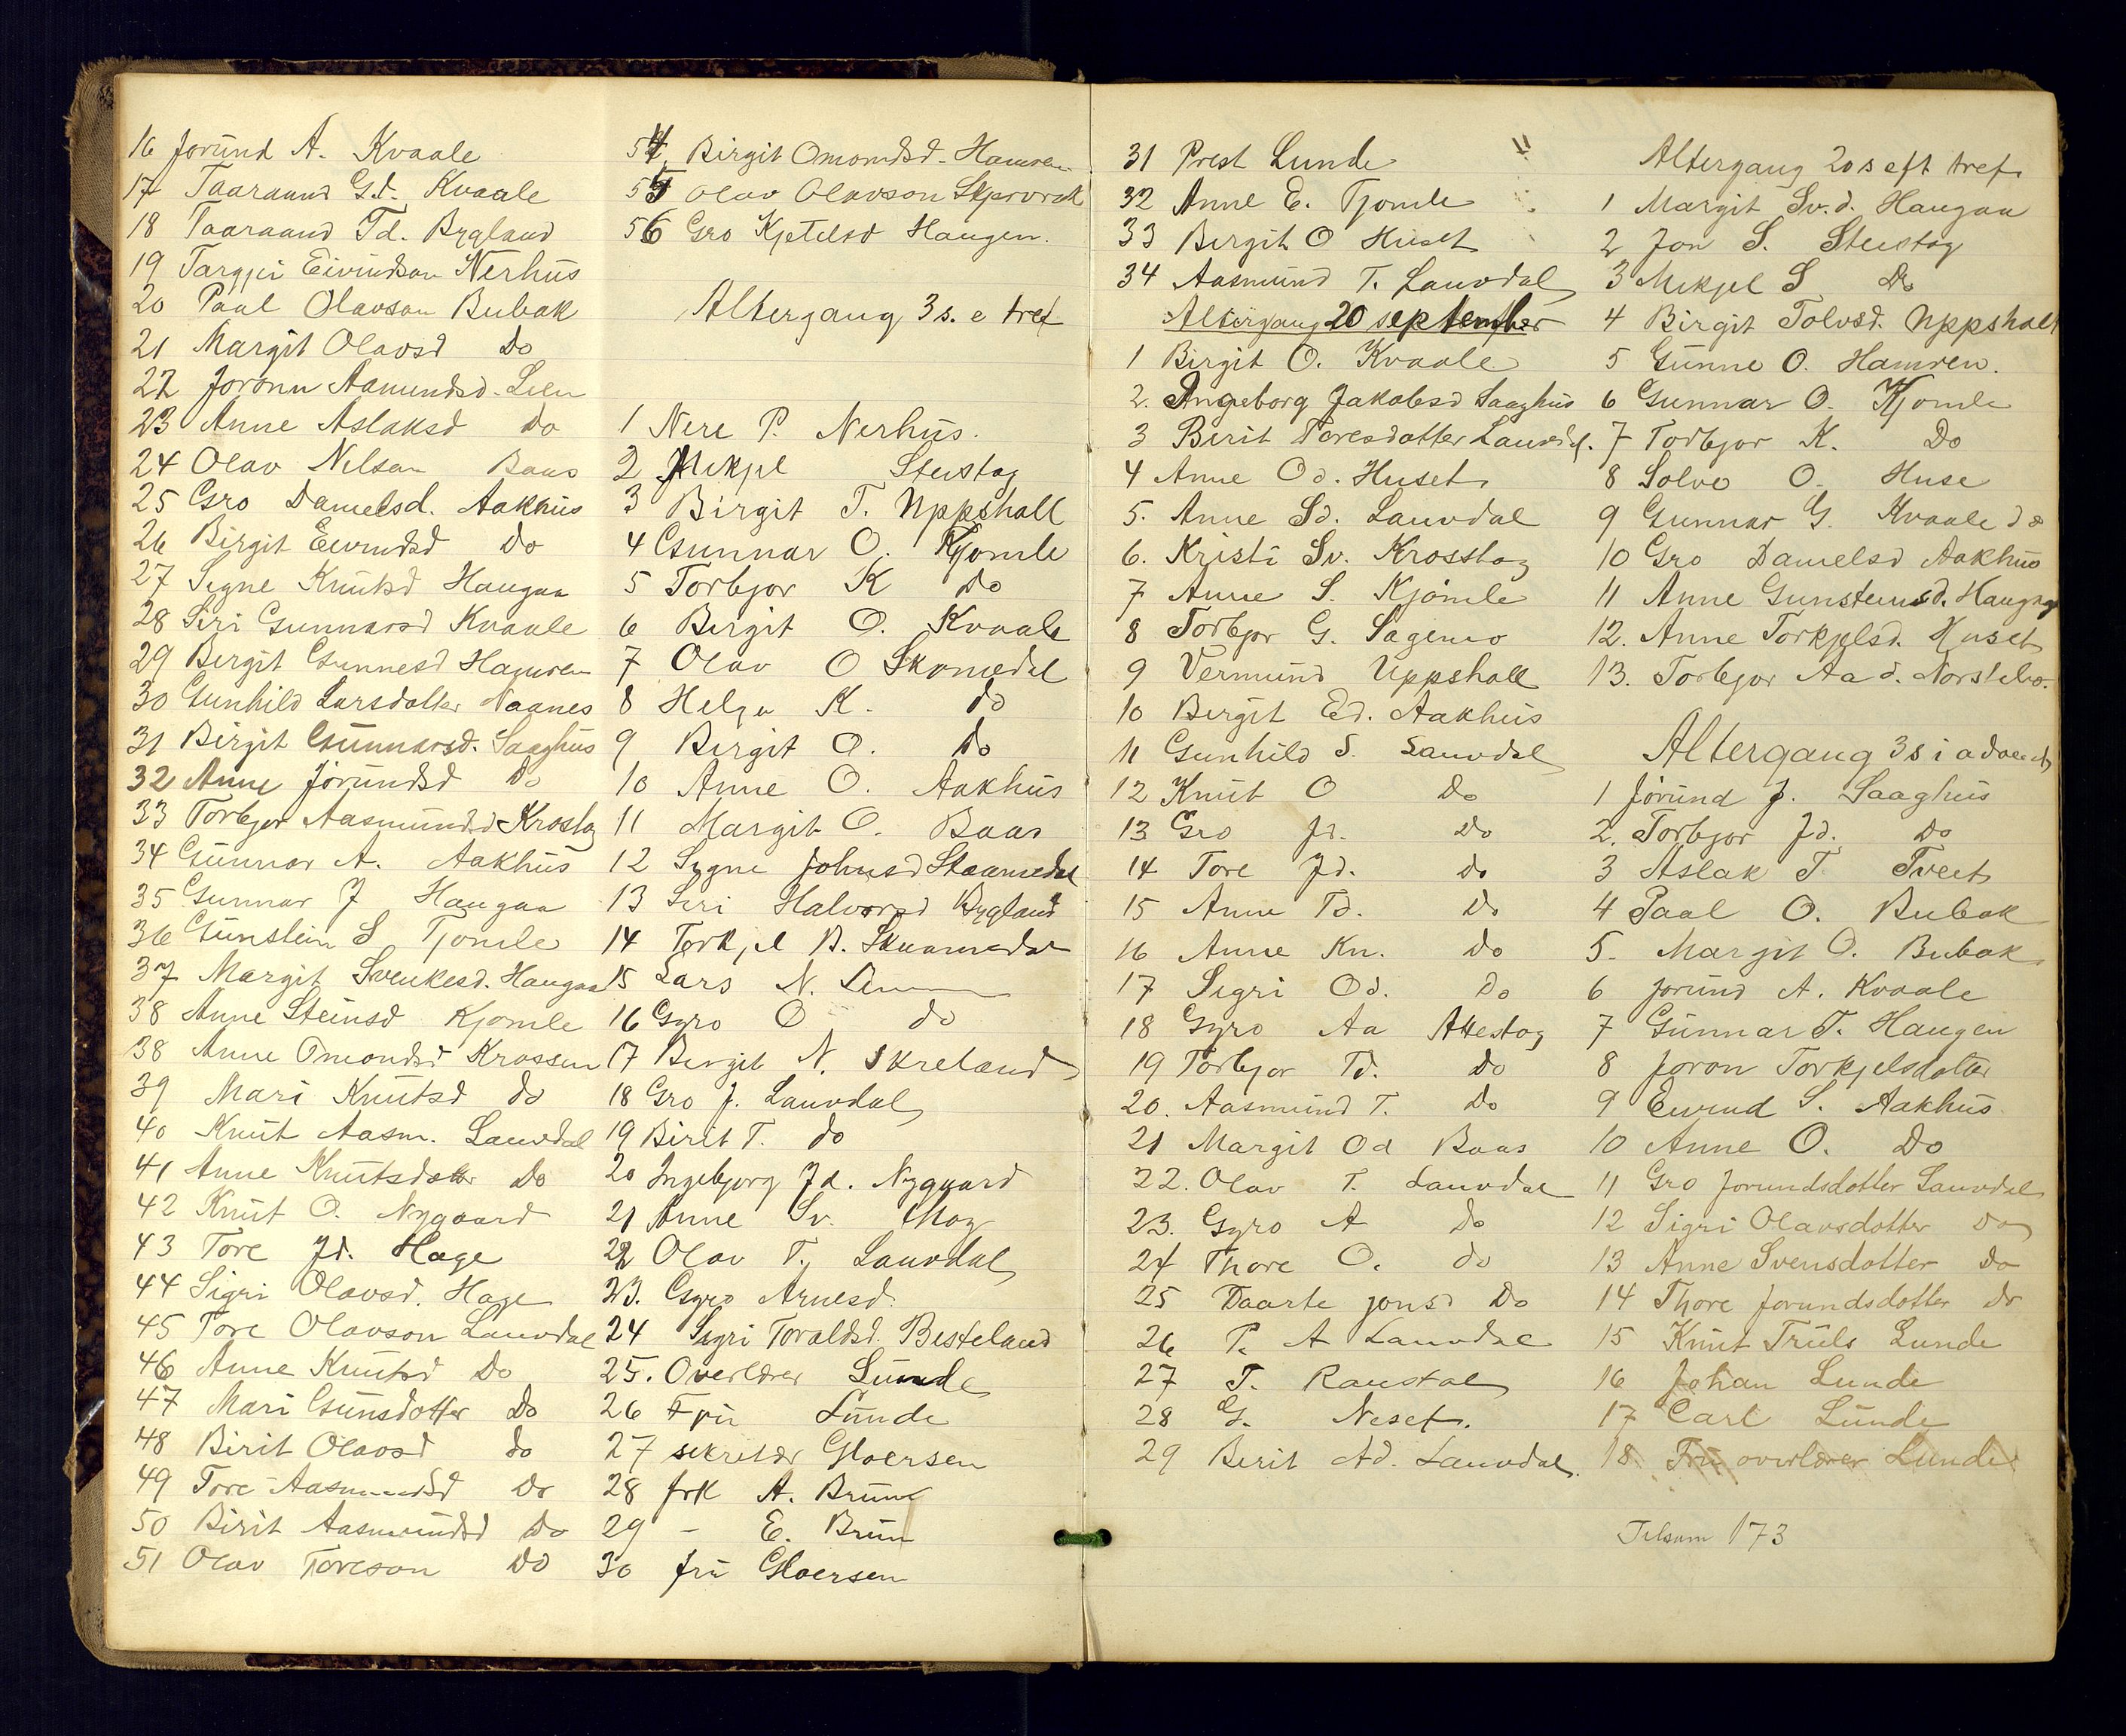 16 Jorund A. Kvaale
17 Taaraand G.d. Kvaale
18 Taaraand Td. Bygland
19 Targjei Eivindson Nerhus
20 Paal Olavson Bubak
21 Margit Olavsd Do
22 Joronn Aamundsd. Lien
23 Anne Aslaksd do
24 Olav Nilsen Baas
25 Gro Danielsd. Aakhus
26 Birgit Eivindsd Do
27 Signe Knutsd Haugaa
28 Siri Gunnarsd Kvaale
29 Birgit Gunnesd Hamren
30 Gunhild Larsdotter Naanes
31 Birgit Gunnarsd. Saaghus
32 Anne Jorundsd Do
33 Torbjor Aasmundsd Krostog
34 Gunnar A. Aakhus
35 Gunnar J Haugaa
36 Gunstein S Tjomle
37 Margit Sveukesd. Haugaa
38 Anne Steinsd Kjomle
38 Anne Omondsd Krossen
39 Mari Knutsd do
40 Knut Aasm. Lauvdal
41 Anne Knutsdotter Do
42 Knut O. Nygaard
43 Tore Jd. Hage
44 Sigri Olavsd. Hage
45 Tore Olavson Lauvdal
46 Anne Knutsd Do
47 Mari Gunsdotter Do
48 Birit Olavsd do
49 Tore Aasmundsd Do
50 Birit Aasmundsd Do
51 Olav Toreson Do
54 Birgit Omondsd. Hamren
55 Olav Olavson
56 Gro Kjetelsd Haugen.
Altergang 3 s. e tref
1 Nere P. Nerhus.
2 Mikjel Steistog
3 Birgit T. Uppshall
4 Gunnar O. Kjomle
5 Torbjor K Do
6 Birgit O. Kvaale
7 Olav O Skomedal
8 Helga K. do
9 Birgit O. do
10 Anne O. Aakhus
11 Margit O. Baas
12 Sygne Johnsd Skaamedal
13 Siri Halvorsd Bygland
14 Torkjel B. Skaamedal
15 Lars N.
16 Gyro O do
17 Birgit N. Skreland
18 Gro J. Lauvdal
19 Birit T. do
20 Ingebjorg Jd. Nygaard
21 Anne Sv. Moy
22 Olav T. Lauvdal
23. Gyro Arnesd.
24 Sigri Toraldsd. Besteland
25. Overlærer Lunde
26 Fru Lunde
27 sekretær Gloersen
28 frk A. Brun
29 - E. Brun
30 fru Gloersen
31 Prest Lunde
32 Anne E. Tjomle
33 Birgit O Huset
34 Aasmund T. Lauvdal
Altergang 20 september
1 Birgit O. Kvaale
2. Angeborg Jakobsd Saaghus
3 Birit Toresdotter Lauvdal.
4 Anne Od. Huset
5. Anne Sd. Lauvdal
6. Kristi Sv. Krosstog
7 Anne S. Kjomle
8 Torbjor G. Sagemo
9 Vermund Uppshall
10 Birgit Ed. Aakhus
11 Gunhild S. Lauvdal
12 Knut O Do
13 Gro Jd. Do
14 Tore Jd. do
15 Anne Td. Do
16 Anne Kn. Do
17 Sigri Od. Do
18 Gyro Aa Attestog
19 Torbjor Td. Do
20. Aasmund T. Do
21 Margit Od Baas
22. Olav T. Lauvdal
23. Gyro A do
24 Thore O. do
25 Daarte jonsd Do
26 P. A Lauvdal
27 T. Raustal
28 G. Neset.
29 Berit Ad. Lauvdal.
Altergang 20 s eft tref.
1 Margit Sv.d. Haugaa
2 Jon S. Steistog
3 Mikjel S Do
4 Birgit Tolvsd. Uppshall
5 Gunne O. Hamren.
6 Gunnar O. Kjomle
7 Torbjor K. Do
8 Solve O. Huse
9 Gunnar G. Kvaale
10 Gro Danielsd Aakhus
11 Anne Gunsteinsd. Haugaa
12. Anne Torkjelsd. Huset
13. Torbjor Aad. Norstebo.
Altergang 3 s i advent
1 Jorund J. Saaghus
2. Torbjor Jd. Do
3 Aslak T Tveit
4 Paal O. Bubak
5. Margit O. Bubak
6 Jorund A. Kvaale
7 Gunnar T. Haugen
8 Joron Torkjelsdotter
9 Eivind S. Aakhus
10 Anne O. Do
11 Gro Jorundsdotter Lauvdal
12 Sigri Olavsdotter Do
13 Anne Svensdotter Do
14 Thore Jorundsdotter Do
15 Knut Truls Lunde
16 Johan Lunde
17 Carl Lunde
18. Fru overlærer Lunde
Tilsam 173